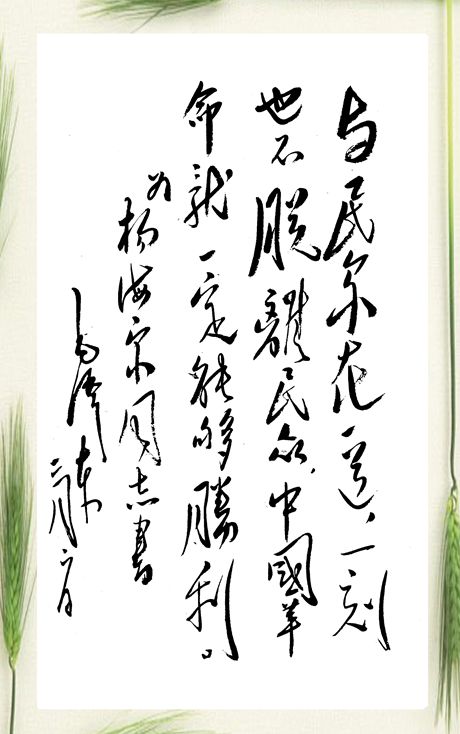 与民众在一道，一刻
也不脱离民众，中國革
命就一定能够勝利。
为杨海宗同志书
毛澤東
二月六日